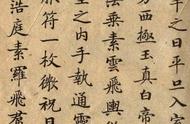 午之日平旦入室
方西極玉真白帝
法乘素雲飛輿
室之内手執通靈
服符一枚微祝曰
浩庭素羅飛